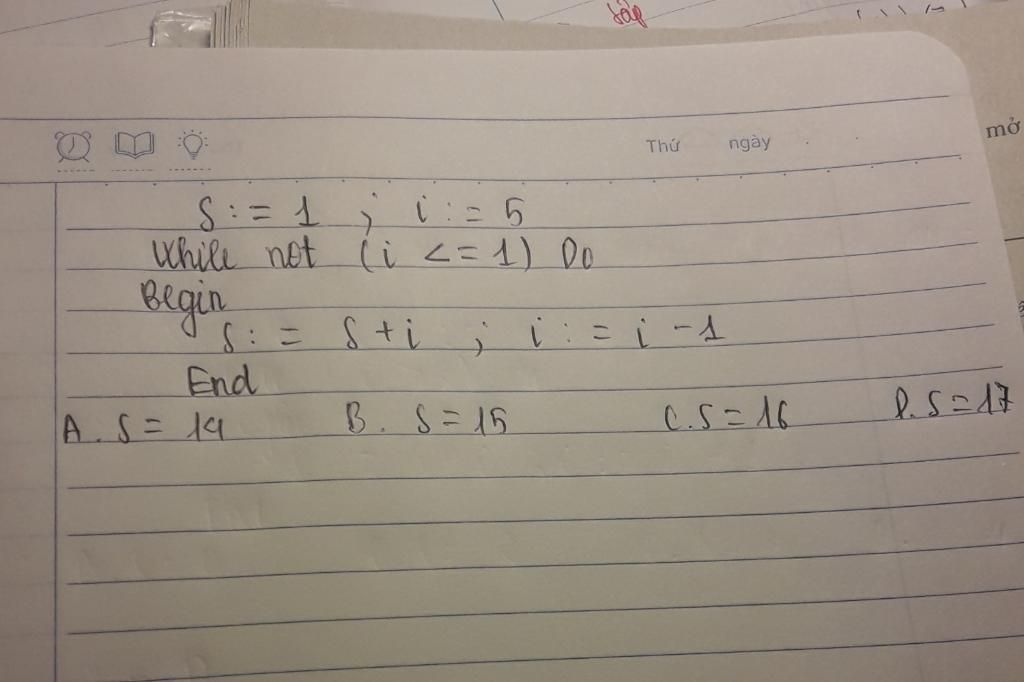 sắp
mở
Thứ ngày
S := 1 ; i := 5
While not (i <= 1) Do
Begin
S := S + i ; i := i - 1
End
A. S = 14 B. S = 15 C. S = 16 D. S = 17